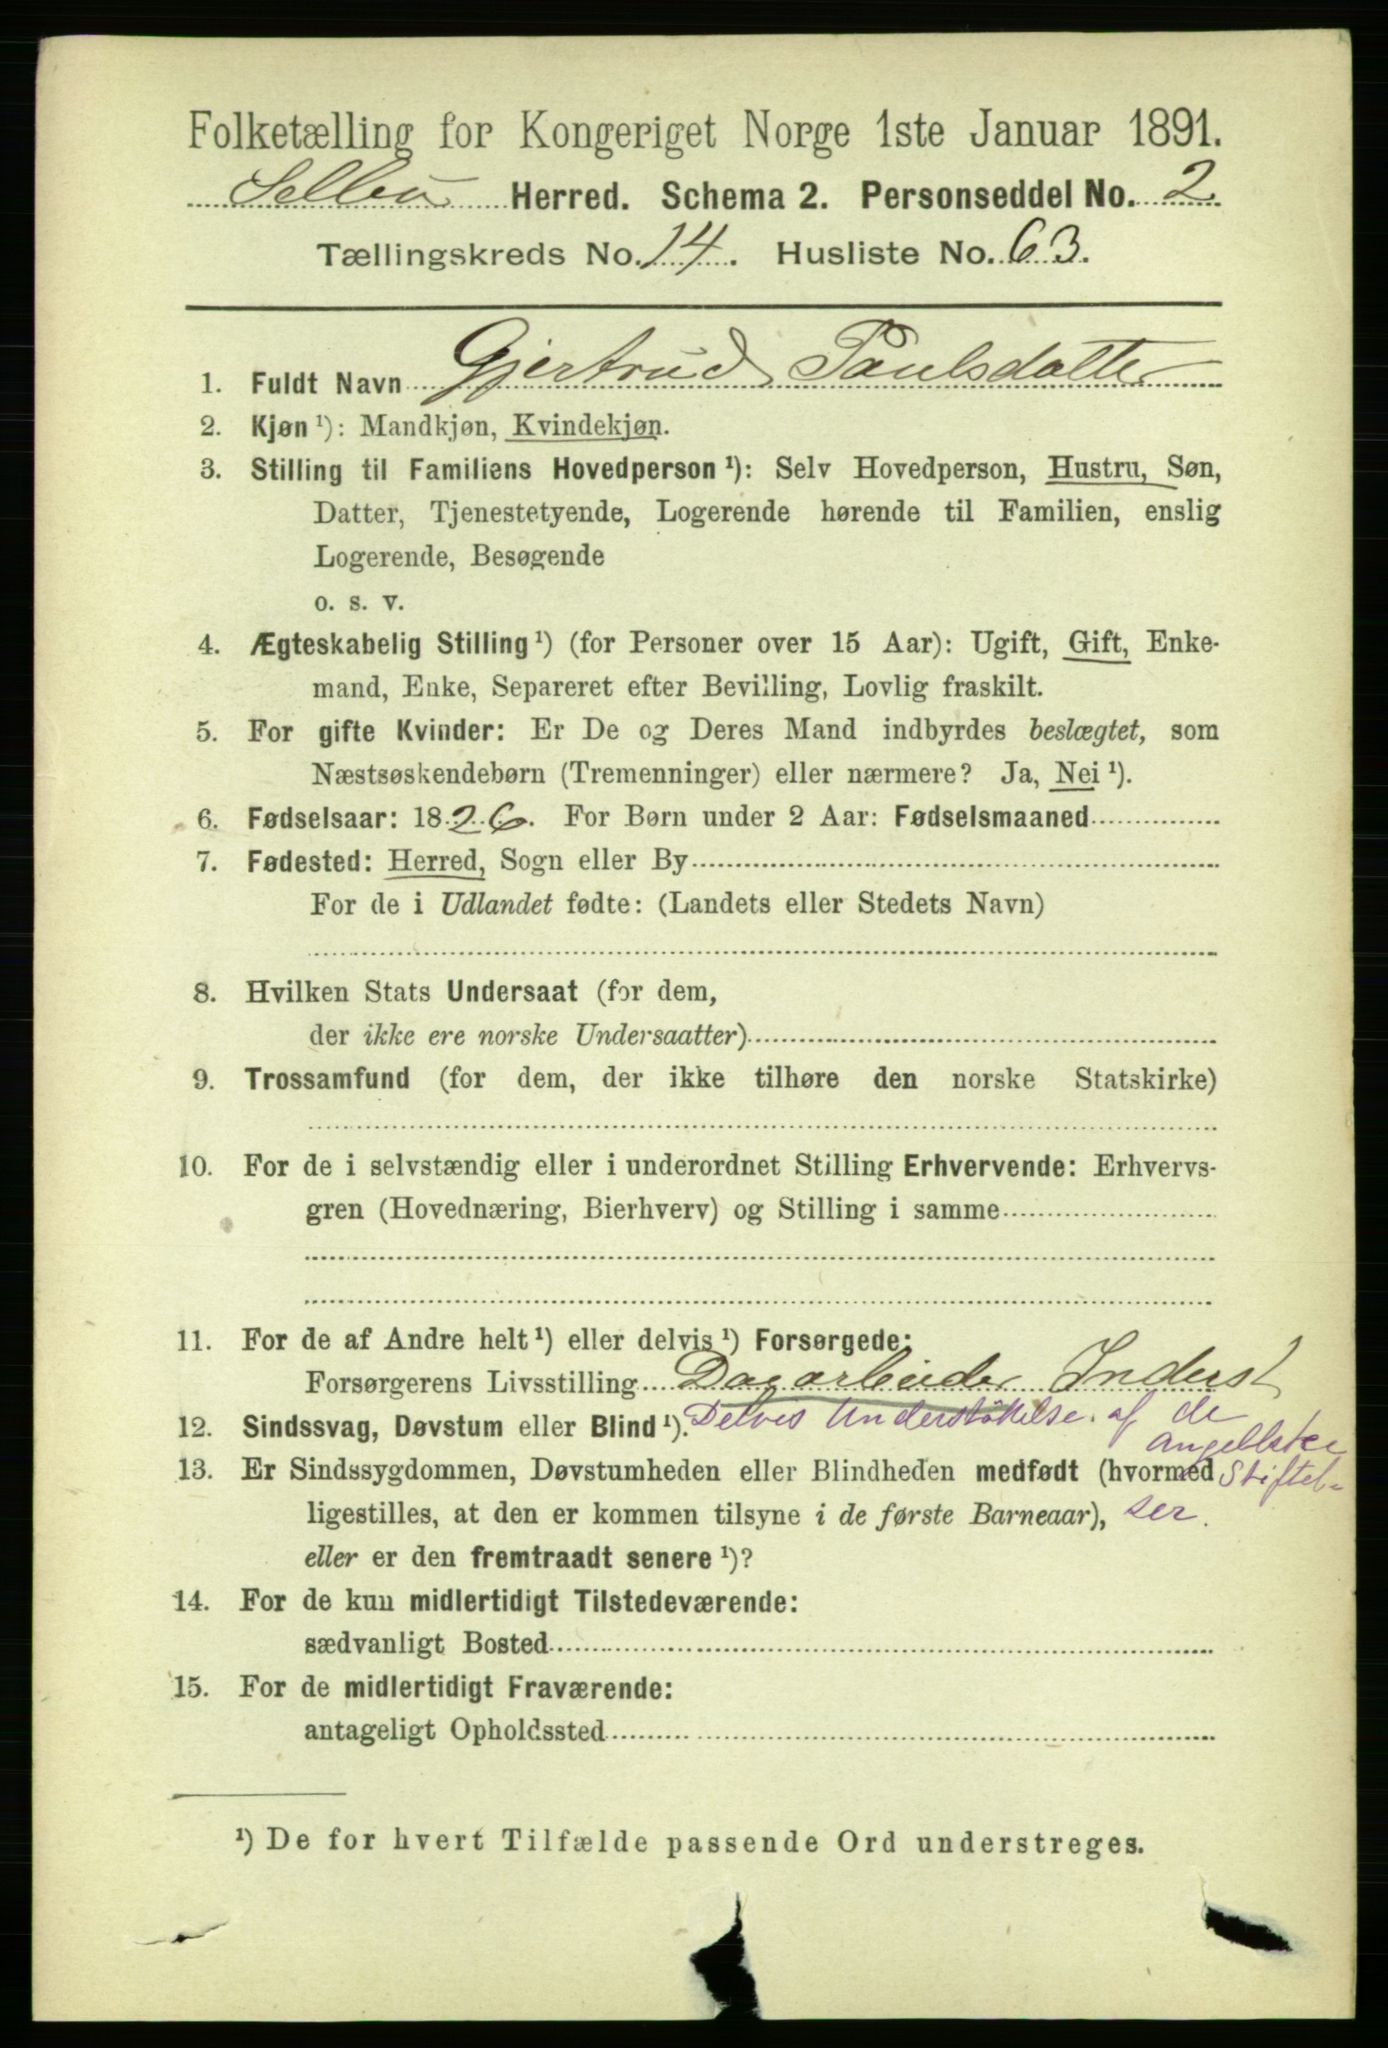 Folketælling for Kongeriget Norge 1ste Januar 1891.
Selbu Herred. Schema 2. Personseddel No. 2
Tællingskreds No. 14. Husliste No. 63.
1. Fuldt Navn Gjertrud Paulsdatter
2. Kjøn ¹): Mandkjøn, Kvindekjøn.
3. Stilling til Familiens Hovedperson ¹): Selv Hovedperson, Hustru, Søn,
Datter, Tjenestetyende, Logerende hørende til Familien, enslig
Logerende, Besøgende
o. s. v.
4. Ægteskabelig Stilling ¹) (for Personer over 15 Aar): Ugift, Gift, Enke-
mand, Enke, Separeret efter Bevilling, Lovlig fraskilt.
5. For gifte Kvinder: Er De og Deres Mand indbyrdes beslægtet, som
Næstsøskendebørn (Tremenninger) eller nærmere? Ja, Nei ¹).
6. Fødselsaar: 1826. For Børn under 2 Aar: Fødselsmaaned
7. Fødested: Herred, Sogn eller By
For de i Udlandet fødte: (Landets eller Stedets Navn)
8. Hvilken Stats Undersaat (for dem,
der ikke ere norske Undersaatter)
9. Trossamfund (for dem, der ikke tilhøre den norske Statskirke)
10. For de i selvstændig eller i underordnet Stilling Erhvervende: Erhvervs-
gren (Hovednæring, Bierhverv) og Stilling i samme
11. For de af Andre helt ¹) eller delvis ¹) Forsørgede:
Forsørgerens Livsstilling Dagarbeider Inderst
12. Sindssvag, Døvstum eller Blind ¹). Delvis Understøttelse af de
Angellske
13. Er Sindssygdommen, Døvstumheden eller Blindheden medfødt (hvormed Stiftel-
ligestilles, at den er kommen tilsyne i de første Barneaar), ser.
eller er den fremtraadt senere ¹)?
14. For de kun midlertidigt Tilstedeværende:
sædvanligt Bosted
15. For de midlertidigt Fraværende:
antageligt Opholdssted
¹) De for hvert Tilfælde passende Ord understreges.